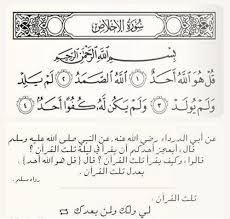 سُورَةُ الإِخْلَاصِ
بِسْمِ اللَّهِ الرَّحْمَٰنِ الرَّحِيمِ
قُلْ هُوَ اللَّهُ أَحَدٌ ١ اللَّهُ الصَّمَدُ ٢ لَمْ يَلِدْ
وَلَمْ يُولَدْ ٣ وَلَمْ يَكُن لَّهُ كُفُوًا أَحَدٌ ٤
عن أبي الدرداء رضي الله عنه عن النبي صلى الله عليه وسلم
قال: أيعجز أحدكم أن يقرأ في ليلة ثلث القرآن ؟
قالوا: وكيف يقرأ ثلث القرآن ؟ قال (قل هو الله أحد)
يعدل ثلث القرآن
رواه مسلم
ثلث القرآن:
لي ولك ولمن بعدك